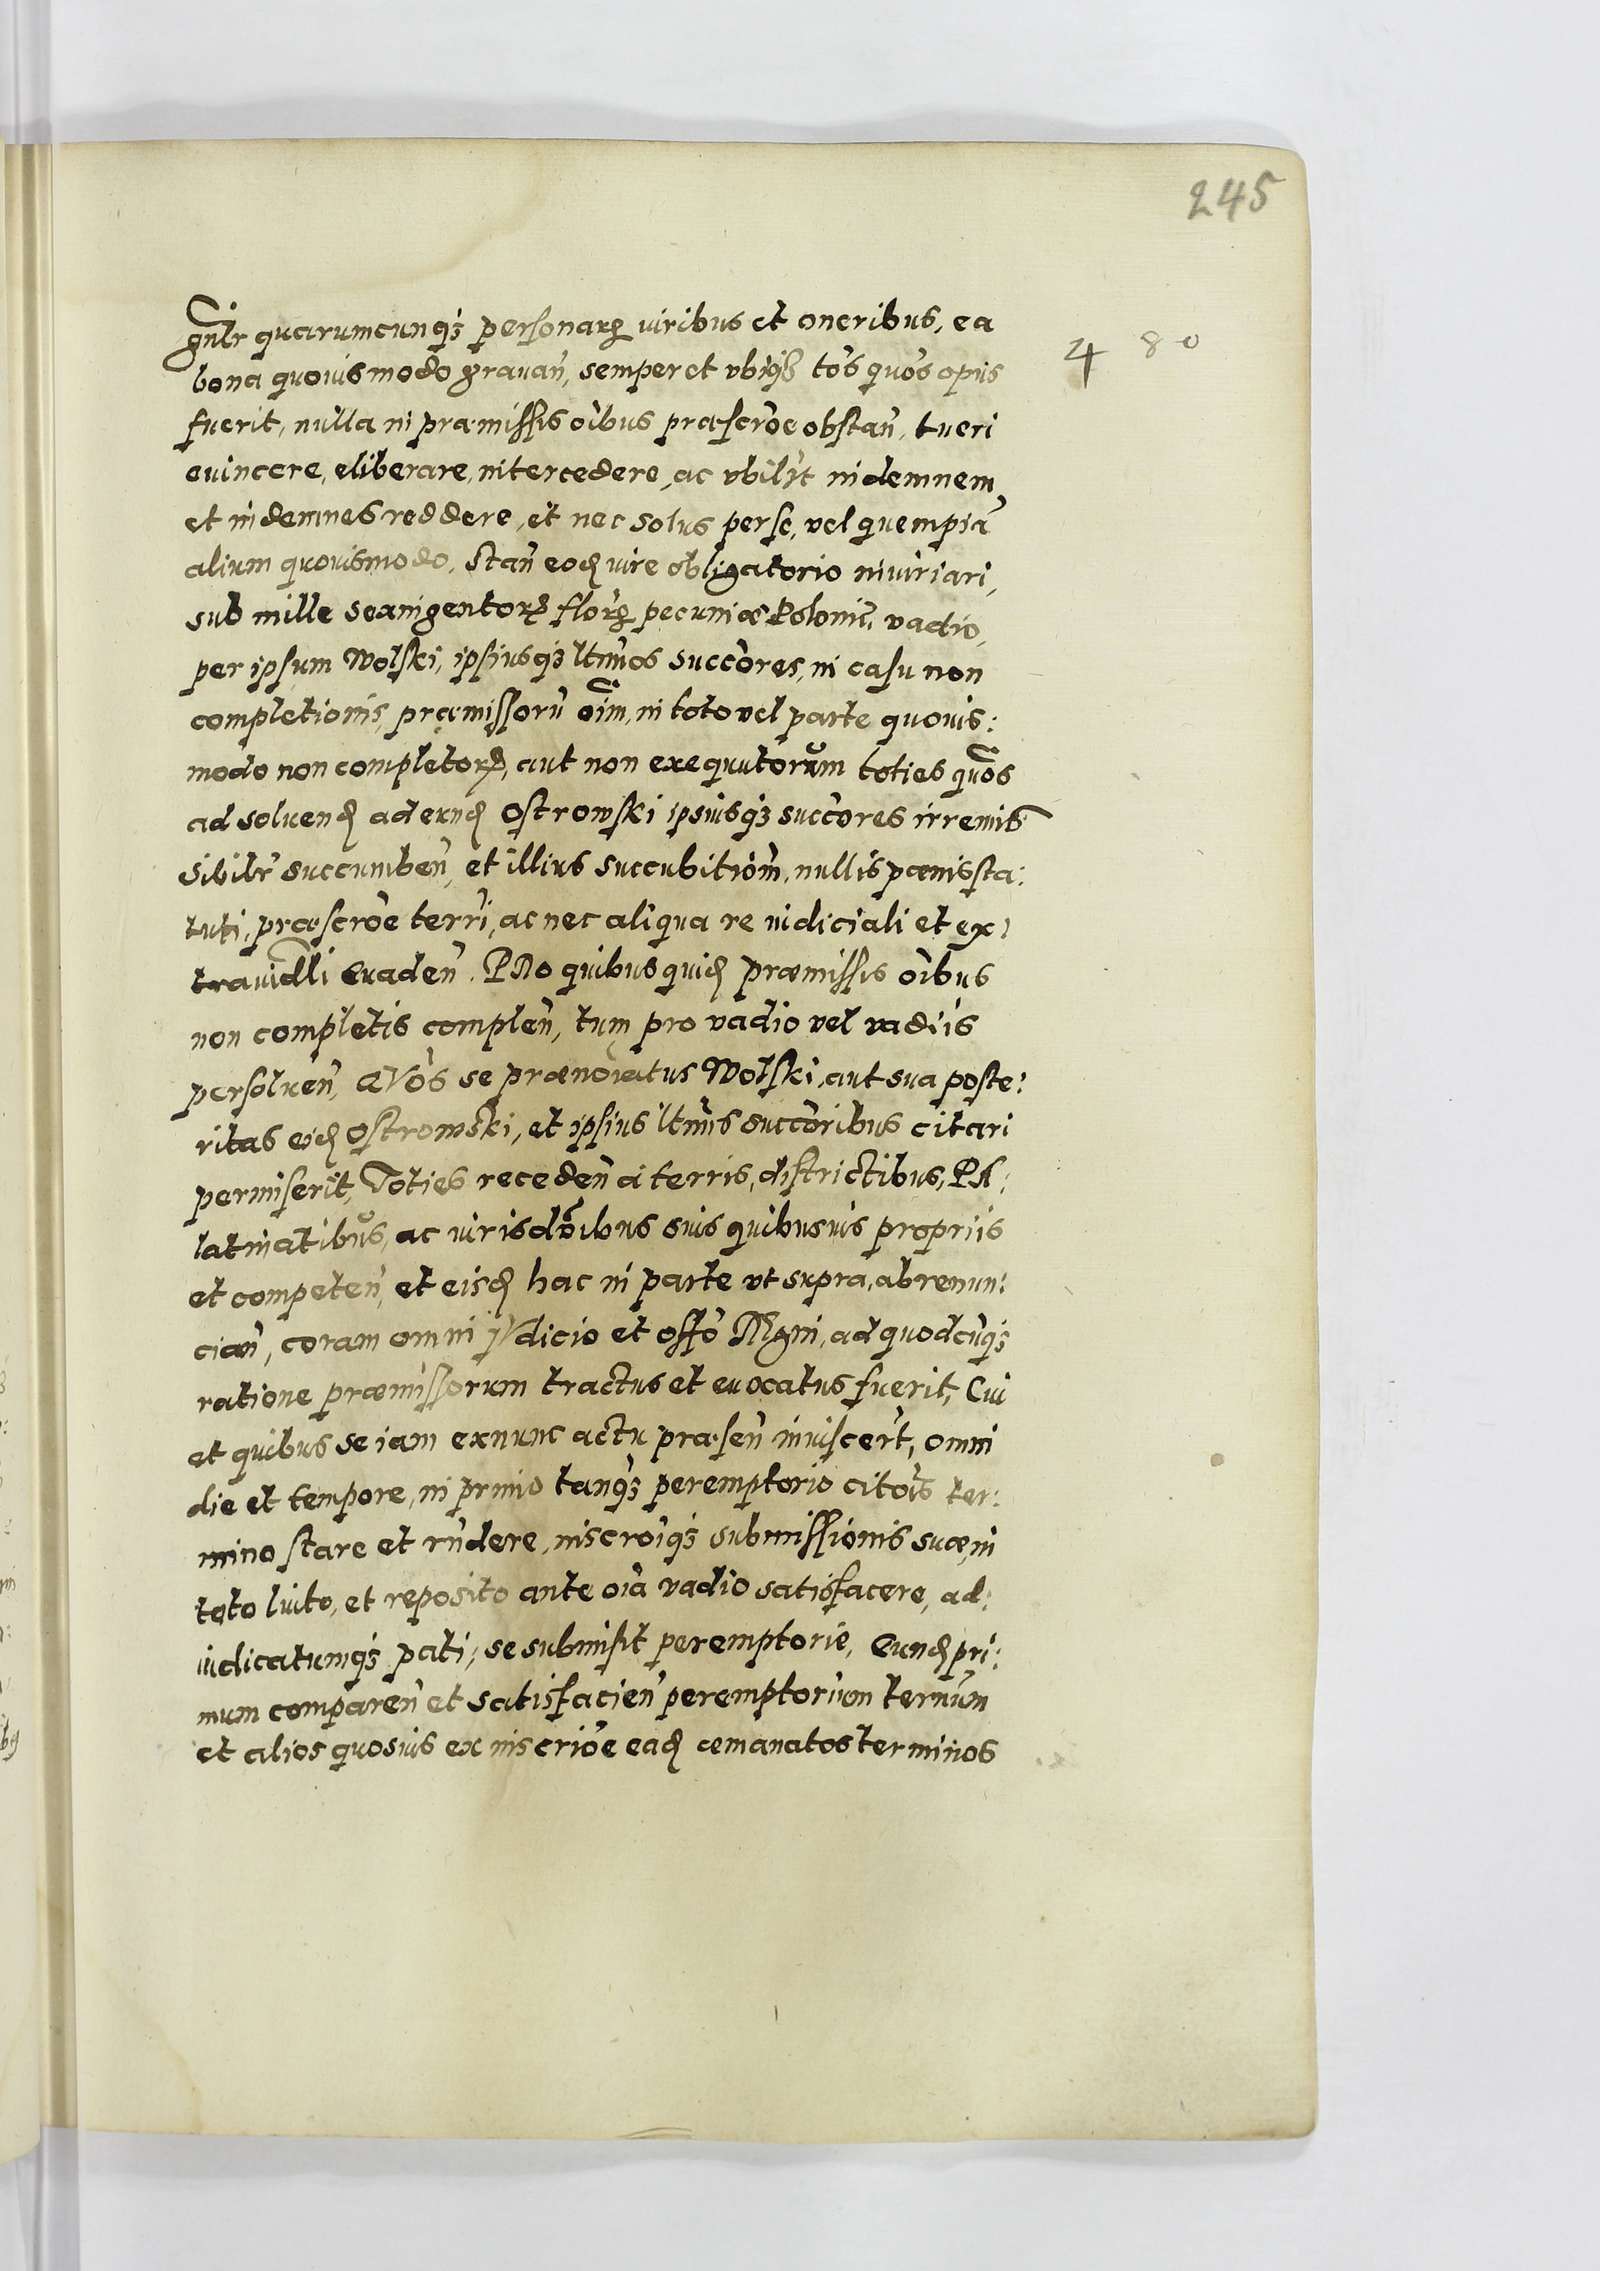 245
4 80
gnlr quarumcunqз personarꝝ iuribus et oneribus, ea
bona quouis modo grauan̄, semper et vbiqз tōs quōs opus
fuerit, nulla in præmissis oībus præscrōe obstan̄, tueri
euincere, eliberare, intercedere, ac vbilīt indemnem
et indemnes reddere, et nec solus per se, vel quempiā
alium quouismodo, stan̄ eodꝫ iure obligatorio iniuriari,
sub mille sexingentorꝝ florꝝ pecuniæ Poloniꝫ. vadio,
per ipsum Wolski, ipsiusqз ltimos succōres, in casu non
completionis, præmissorū oīm, in toto vel parte quouis:
modo non completorꝝ, aut non exequutorum toties quōs
ad soluendꝫ ad eundꝫ Ostrowski ipsiusqз succōres irremis
sibilr̄ succumben̄, et illius succubitiōm, nullis pœnis sta:
tuti, præscrōe terri, ac nec aliqua re iudiciali et ex:
traiudlli euaden̄. PRo quibus quidꝫ præmissis oībus
non completis complen̄, tum pro vadio vel vadijs
persoluen̄, QVōs se prænoīatus Wolski, aut sua poste:
ritas eidꝫ Ostrowski, et ipsius ltimis succōribus citari
permiserit, Toties receden̄ a terris, districtibus, PA:
latinatibus, ac iurisdōibus suis quibusuis proprijs
et competen̄, et eisdꝫ hac in parte vt supra, abrenun:
cian̄, coram omni iVdicio et offō REgni, ad quodcūqз
ratione præmissorum tractus et euocatus fuerit, Cui
et quibus se iam exnunc actu præsen̄ inuiscerit, omni
die et tempore, in primo tanqз peremptorio citōis ter:
mino stare et rn̄dere, inscrōiqз submissionis suæ, in
toto luito, et reposito ante oīa vadio satisfacere, ad:
iudicatumqз pati, se submisit peremptorie, Eundꝫ pri:
mum comparen̄ et satisfacien̄ peremptorium terminum
et alios quosuis ex inscriōe eadꝫ æmanatos terminos